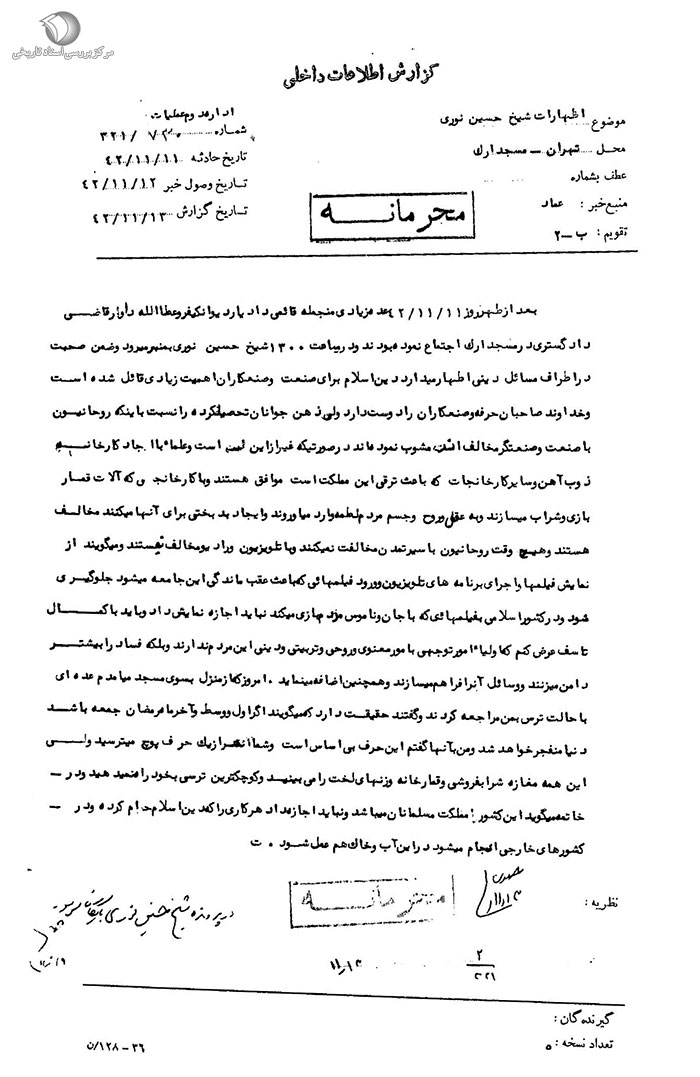 مرکز بررسی اسناد تاریخی
گزارش اطلاعات داخلی
موضوع اظهارات شیخ حسین نوری
محل تهران – مسجد ارک
عطف بشماره
منبع خبر : عماد
تقویم : ب – ۲
اداره دوم عملیات
شماره ۳۲۱/
تاریخ حادثه ۴۲/۱۱/۱۱
تاریخ وصول خبر ۴۲/۱۱/۱۲
تاریخ گزارش ۴۲/۱۱/۱۳
محرمانه
بعد از ظهر روز ۴۲/۱۱/۱۱ عده زیادی منجمله قائمی دادیار دیوانکیفر و عطاالله داوار قاضی
دادگستری در مسجد ارک اجتماع نموده بودند و در ساعت ۱۳۰۰ شیخ حسین نوری بمنبر میرود و ضمن صحبت
در اطراف مسائل دینی اظهار میدارد دین اسلام برای صنعت و صنعتکاران اهمیت زیادی قائل شده است
و خداوند صاحبان حرفه و صنعتکاران را دوست دارد ولی ذهن جوانان تحصیلکرده را نسبت باینکه روحانیون
با صنعت و صنعتگر مخالف است مشوب نموده‌اند در صورتیکه غیر از این است و علماء با ایجاد کارخانه
ذوب آهن و سایر کارخانجات که باعث ترقی این مملکت است موافق هستند و با کارخانجی که آلات قمار
بازی و شراب میسازند و به عقل و روح و جسم مردم لطمه وارد میاورند و ایجاد بدبختی برای آنها میکنند مخالف
هستند و هیچ وقت روحانیون با سیر تمدن مخالفت نمیکنند و با تلویزیون و رادیو مخالف نیستند و میگویند از
نمایش فیلمها و اجرای برنامه های تلویزیون و ورود فیلمهائی که باعث عقب ماندگی این جامعه میشود جلوگیری
شود و در کشور اسلامی بفیلمهائی که با جان و ناموس مردم بازی میکند نباید اجازه نمایش داد و باید با کمال
تاسف عرض کنم که اولیاء امور توجهی بامور معنوی و روحی و تربیتی و دینی این مردم ندارند و بلکه فساد را بیشتر
دامن میزنند و وسائل آنرا فراهم میسازند و همچنین اضافه مینماید ۰ امروز که از منزل بسوی مسجد میامدم عده ای
با حالت ترس بمن مراجعه کردند و گفتند حقیقت دارد که میگویند اگر اول و وسط و آخر ماه رمضان جمعه باشد
دنیا منفجر خواهد شد و من بآنها گفتم این حرف بی اساس است و شما آنقدر از یک حرف پوچ میترسید ولی
این همه مغازه شرابفروشی و قمارخانه و زنهای لخت را می بینید و کوچکترین ترسی بخود راه نمیدهید و در –
خاتمه میگوید این کشور مملکت مسلمانان میباشد و نباید اجازه داد هر کاری را که دین اسلام حرام کرده و در –
کشورهای خارجی انجام میشود در این آب و خاک هم عمل شود ۰ ت
نظریه :
محرمانه
در پرونده شیخ حسین نوری
۲
۳۲۱
گیرندگان :
تعداد نسخه : ۵
۳۶ – ۱۲۸/ن